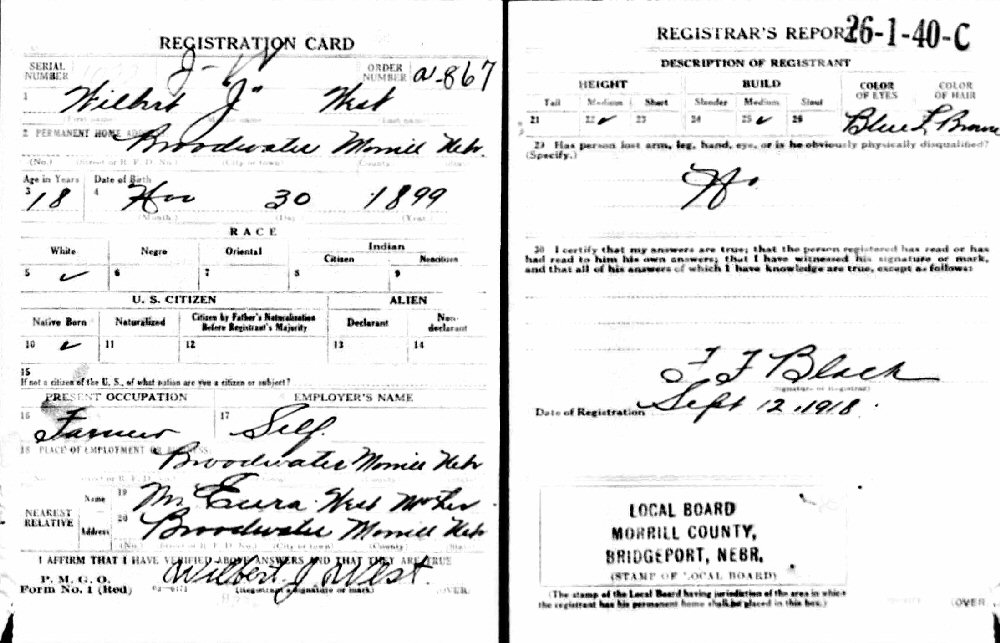 REGISTRATION CARD
SERIAL NUMBER
ORDER NUMBER a-867
1 Wilbert "J" West
(First name) (Middle name) (Last name)
2 PERMANENT HOME ADDRESS
Broodwater Morrill Nebr.
(No.) (Street or R. F. D. No.) (City or town) (County) (State)
Age in Years Date of Birth
3 18 4 Nov 30 1899
(Month) (Day) (Year)
RACE
White Negro Oriental Indian
Citizen Noncitizen
5 ✓ 6 7 8 9
U. S. CITIZEN ALIEN
Native Born Naturalized Citizen by Father's Naturalization Before Registrant's Majority Declarant Non-declarant
10 ✓ 11 12 13 14
15
If not a citizen of the U. S., of what nation are you a citizen or subject?
PRESENT OCCUPATION EMPLOYER'S NAME
16 Farmer 17 Self
18 PLACE OF EMPLOYMENT OR BUSINESS:
Broodwater Morrill Nebr
NEAREST RELATIVE
Name 19 West Mother
Address 20 Broodwater Morrill Nebr
(No.) (Street or R. F. D. No.) (City or town) (County) (State)
I AFFIRM THAT I HAVE VERIFIED ABOVE ANSWERS AND THAT THEY ARE TRUE
P. M. G. O.
Form No. 1 (Red) Wilbert J West.
(Registrant's signature or mark) (OVER)
REGISTRAR'S REPORT 26-1-40-C
DESCRIPTION OF REGISTRANT
HEIGHT BUILD COLOR OF EYES COLOR OF HAIR
Tall Medium Short Slender Medium Stout
21 22 ✓ 23 24 25 ✓ 26 Blue Brown
29 Has person lost arm, leg, hand, eye, or is he obviously physically disqualified?
(Specify.)
No
30 I certify that my answers are true; that the person registered has read or has
had read to him his own answers; that I have witnessed his signature or mark,
and that all of his answers of which I have knowledge are true, except as follows:
F F Black
(Signature of Registrar)
Date of Registration Sept 12, 1918.
LOCAL BOARD
MORRILL COUNTY,
BRIDGEPORT, NEBR.
(STAMP OF LOCAL BOARD)
(The stamp of the Local Board having jurisdiction of the area in which
the registrant has his permanent home shall be placed in this box.)
(OVER)